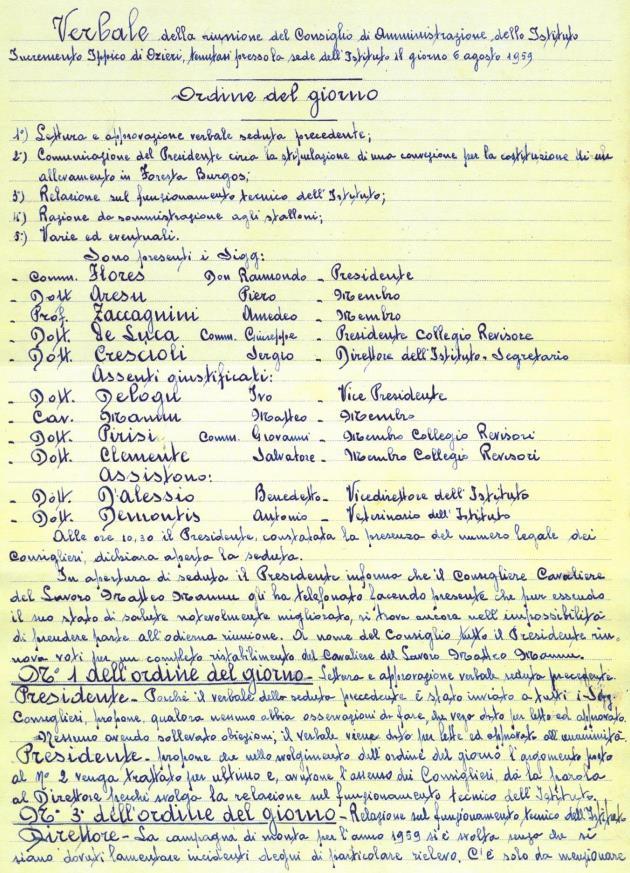 Verbale della riunione del Consiglio di Amministrazione dello Istituto
Incremento Ippico di Ozieri, tenutasi presso la sede dell'Istituto il giorno 6 agosto 1959
Ordine del giorno
1°) Lettura e approvazione verbale seduta precedente;
2°) Comunicazione del Presidente circa la stipulazione di una convezione per la costituzione di un
allevamento in Foresta Burgos;
3°) Relazione sul funzionamento tecnico dell'Istituto;
4°) Razione da somministrazione agli stalloni;
5°) Varie ed eventuali.
Sono presenti i Sigg:
- Comm. Flores Don Raimondo - Presidente
- Dott. Aresu Piero - Membro
- Prof. Zaccagnini Amedeo - Membro
- Dott. De Luca Comm. Giuseppe - Presidente Collegio Revisore
- Dott. Crescioli Sergio - Direttore dell'Istituto - Segretario
Assenti giustificati:
- Dott. Delogu Ivo - Vice Presidente
- Cav. Mannu Matteo - Membro
- Dott. Pirisi Comm. Giovanni - Membro Collegio Revisori
- Dott. Clemente Salvatore - Membro Collegio Revisori
Assistono:
- Dott. D'Alessio Benedetto - Vicedirettore dell'Istituto
- Dott. Demontis Antonio - Veterinario dell'Istituto
Alle ore 10,30 il Presidente, constatata la presenza del numero legale dei
Consiglieri, dichiara aperta la seduta.
In apertura di seduta il Presidente informa che il Consigliere Cavaliere
del Lavoro Matteo Mannu gli ha telefonato facendo presente che pur essendo
il suo stato di salute notevolmente migliorato, si trova ancora nell'impossibilità
di prendere parte all'odierna riunione. A nome del Consiglio tutto il Presidente rin-
nova voti per un completo ristabilimento del Cavaliere del Lavoro Matteo Mannu.
N° 1 dell'ordine del giorno - Lettura e approvazione verbale seduta precedente.
Presidente - Poichè il verbale della seduta precedente è stato inviato a tutti i Sigg.
Consiglieri, propone, qualora nessuno abbia osservazioni da fare, che venga dato per letto ed approvato.
Nessuno avendo sollevato obiezioni, il verbale viene dato per letto ed approvato all'unanimità.
Presidente - propone che nello svolgimento dell'ordine del giorno l'argomento posto
al N° 2 venga trattato per ultimo e, avutone l'assenso dei Consiglieri, dà la parola
al Direttore perchè svolga la relazione sul funzionamento tecnico dell'Istituto.
N° 3 dell'ordine del giorno - Relazione sul funzionamento tecnico dell'Istituto
Direttore - La campagna di monta per l'anno 1959 si è svolta senza che si
siano dovuti lamentare incidenti degni di particolare rilievo. C'è solo da menzionare